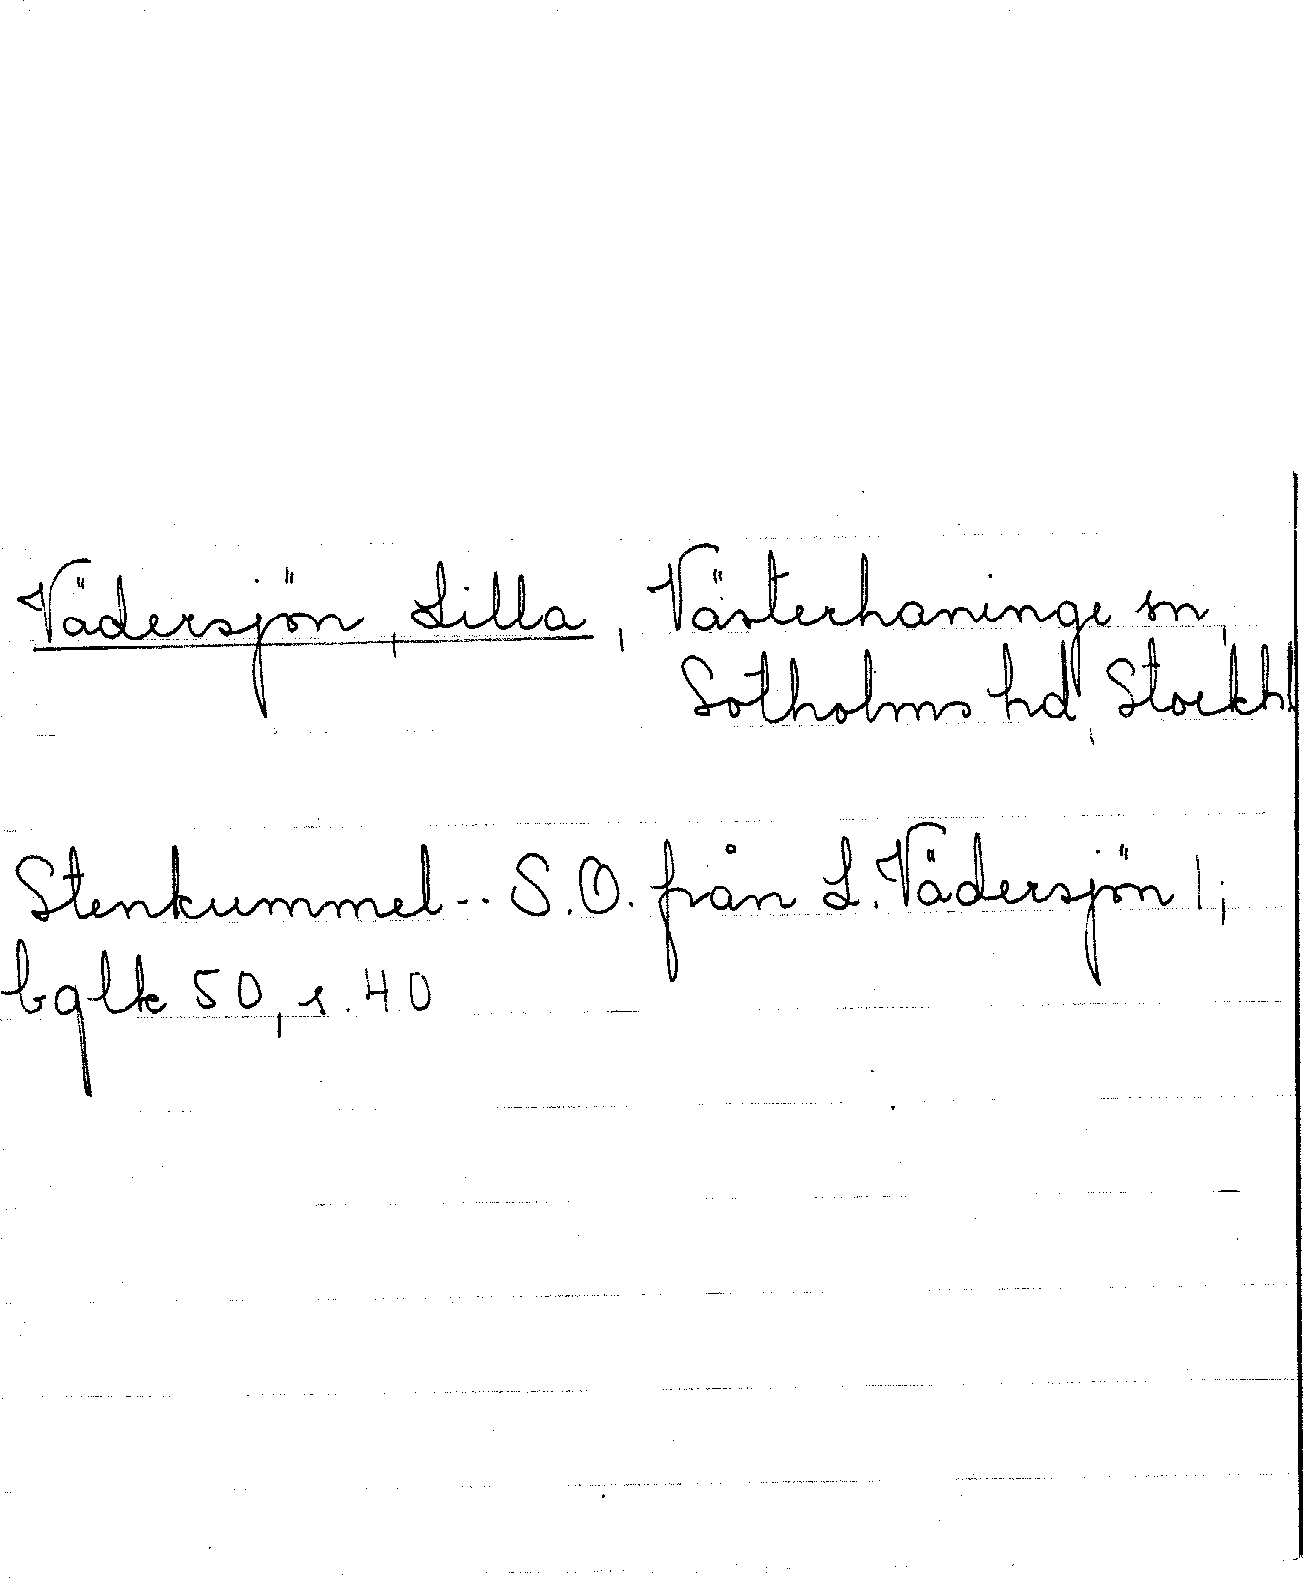 Vädersjön, Lilla, Västerhaninge sn,
Sotholms hd, Stockhl
Stenkummel -- S.O. från L. Vädersjön |;
bglk 50, s. 40